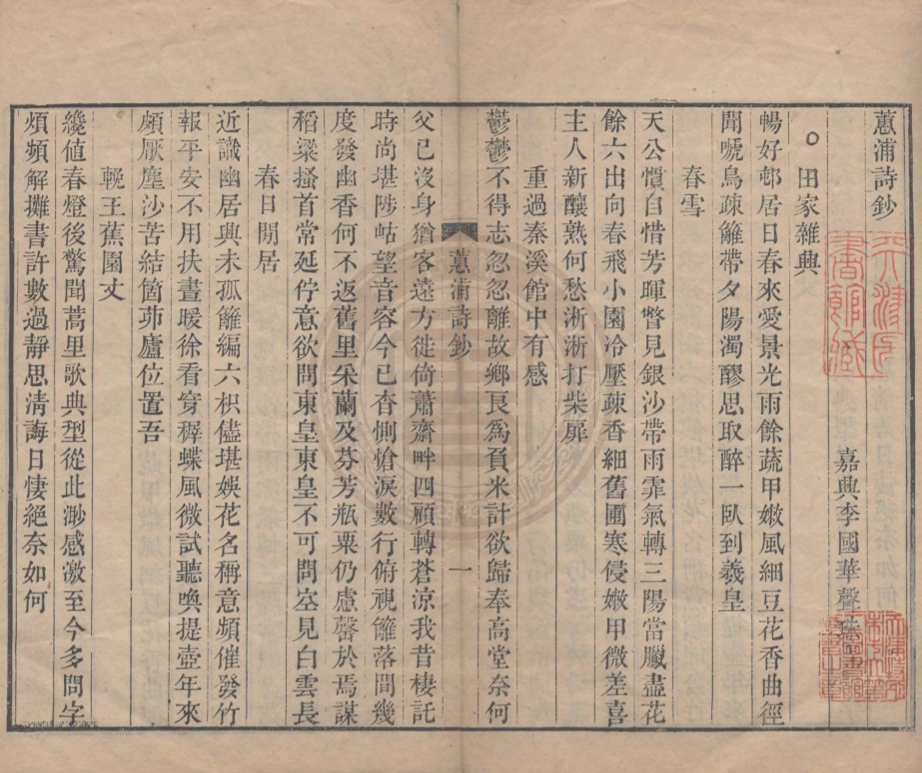 蕙浦詩鈔
嘉興李國華聲
田家雜興
暢好邨居日春來愛景光雨餘蔬甲嫩風細豆花香曲徑
聞啼鳥疎籬帶夕陽濁醪思取醉一臥到羲皇
春雪
天公慣自惜芳暉瞥見銀沙帶雨霏氣轉三陽當臘盡花
餘六出向春飛小園冷壓疎香細舊圃寒侵嫩甲微差喜
主人新釀熟何愁淅淅打柴扉
重過秦溪館中有感
鬱鬱不得志忽忽離故鄉良爲負米計欲歸奉高堂奈何
蕙浦詩鈔 一
父已沒身猶客遠方徙倚蕭齋畔四顧轉蒼涼我昔棲託
時尚堪陟岵望音容今已杳惻愴淚數行俯視籬落間幾
度發幽香何不返舊里采蘭及芬芳瓶粟仍慮罄於焉謀
稻粱搔首常延佇意欲問東皇東皇不可問空見白雲長
春日閒居
近識幽居興未孤籬編六枳儘堪娛花名稱意頻催發竹
報平安不用扶晝暖徐看穿穉蝶風微試聽喚提壺年來
頗厭塵沙苦結箇茆廬位置吾
輓王蕉園丈
纔値春燈後驚聞蒿里歌典型從此渺感激至今多問字
煩頻解攤書許數過靜思淸誨日悽絕奈如何